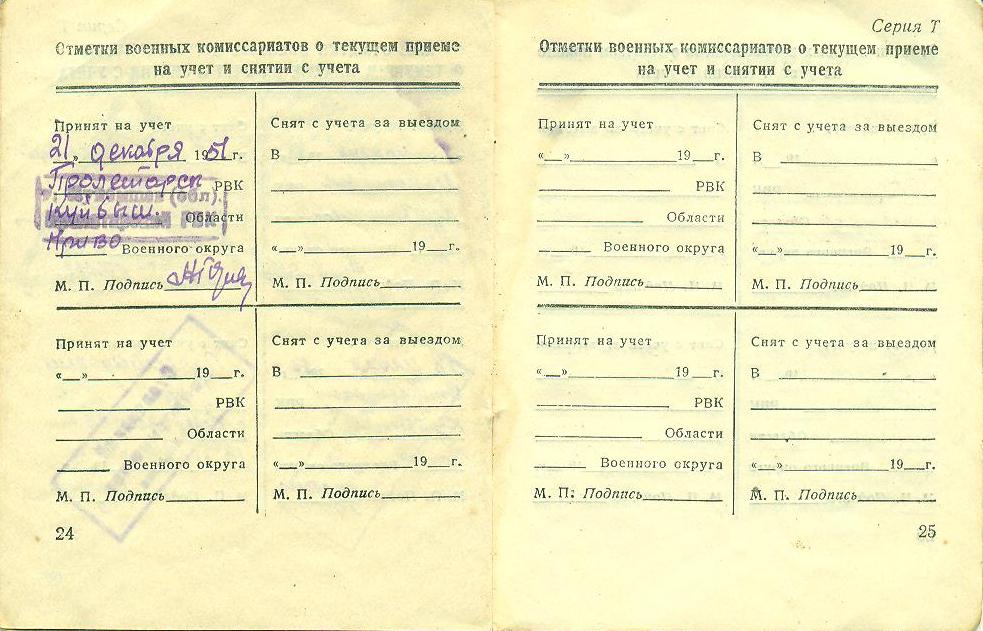 Отметки военных комиссариатов о текущем приеме
на учет и снятии с учета
Принят на учет
21 » декабря 1951г.
Пролетарск РВК
Куйбыш. Области
Приво Военного округа
М. П. Подпись
Снят с учета за выездом
В
«__»__________19__г.
М. П. Подпись
Принят на учет
«__»__________19__г.
РВК
Области
Военного округа
М. П. Подпись
Снят с учета за выездом
В
«__»__________19__г.
М. П. Подпись
24
Серия Т
Отметки военных комиссариатов о текущем приеме
на учет и снятии с учета
Принят на учет
«__»__________19__г.
РВК
Области
Военного округа
М. П. Подпись
Снят с учета за выездом
В
«__»__________19__г.
М. П. Подпись
Принят на учет
«__»__________19__г.
РВК
Области
Военного округа
М. П. Подпись
Снят с учета за выездом
В
«__»__________19__г.
М. П. Подпись
25